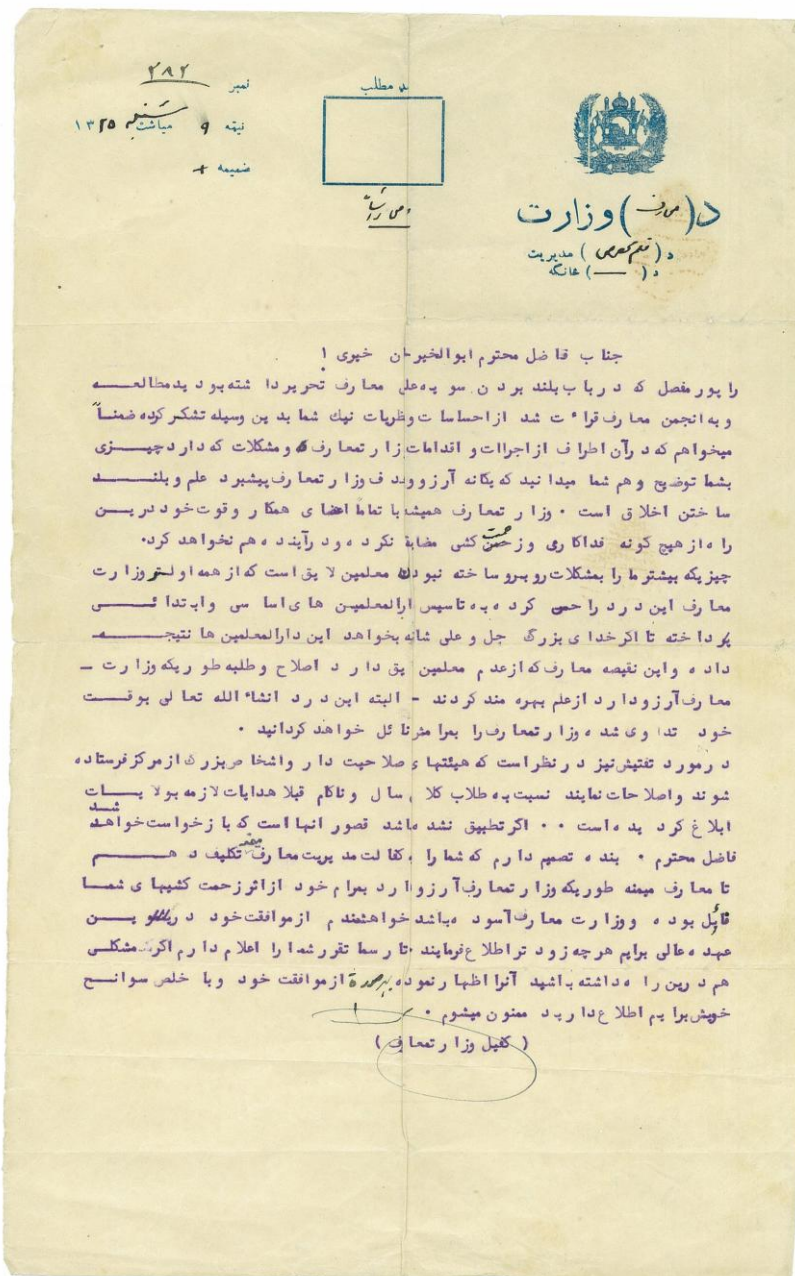 نمبر ۲۸۲
نیټه ۹ میاشت سنبله ۱۳۲۵
ضمیمه +
د مطلب
د ( معارف ) وزارت
د ( قلم مخصوص ) مدیریت
د ( — ) څانګه
جناب فاضل محترم ابوالخیر خان خیری !
راپور مفصل که در باب بلند بردن سویه علی معارف تحریر داشته بودید مطالعه
و به انجمن معارف قرائت شد از احساسات و نظریات نیک شما بدین وسیله تشکر کرده ضمناً
میخواهم که در آن اطراف از اجراات و اقدامات وزارتمعارف و مشکلات که دارد چیزی
بشما توضیح و هم شما میدانید که یگانه آرزو و هدف وزارتمعارف پیشبرد علم و بلند
ساختن اخلاق است . وزارتمعارف همیشه با تماما اعضای همکار و قوت خود درین
راه از هیچ گونه فداکاری و زحمت کشی مضایقه نکرده و در آینده هم نخواهد کرد.
چیزیکه بیشتر ما را بمشکلات روبرو ساخته نبودن معلمین لایق است که از همه اولتر وزارت
معارف این درد را حس کرده به تاسیس دارالمعلمین های اساسی و ابتدائی
پرداخته تا اگر خدای بزرگ جل و علی شانه بخواهد این دارالمعلمین ها نتیجه
داده و این نقیصه معارف که از عدم معلمین لایق دارد اصلاح و طلبه طوریکه وزارت -
معارف آرزو دارد از علم بهره مند گردند - البته این درد انشاء الله تعالی بوقت
خود تداوی شده وزارتمعارف را بمرامش نائل خواهد گردانید .
در مورد تفتیش نیز در نظر است که هیئتهای صلاحیت دار و اشخاص بزرگ از مرکز فرستاده
شوند و اصلاحات نمایند نسبت به طلاب کلان سال و ناکام قبلا هدایات لازمه بولایات
ابلاغ گردیده است . . اگر تطبیق نشده باشد قصور انها است که باز خواست خواهد شد
فاضل محترم . بنده تصمیم دارم که شما را به کفالت مدیریت معارف میمنه تکلیف دهم
تا معارف میمنه طوریکه وزارتمعارف آرزو دارد بمرام خود از اثر زحمت کشیهای شما
نائل بوده و وزارت معارف آسوده باشد خواهشمندم از موافقت خود در این
عهده عالی برایم هرچه زودتر اطلاع فرمایند تا رسما تقرر شما را اعلام دارم اگر مشکلی
هم درین راه داشته باشید آنرا اظهار نموده بهر صورة از موافقت خود و با خلص سوانح
خویش برایم اطلاع دارید ممنون میشوم .
( کفیل وزارتمعارف )